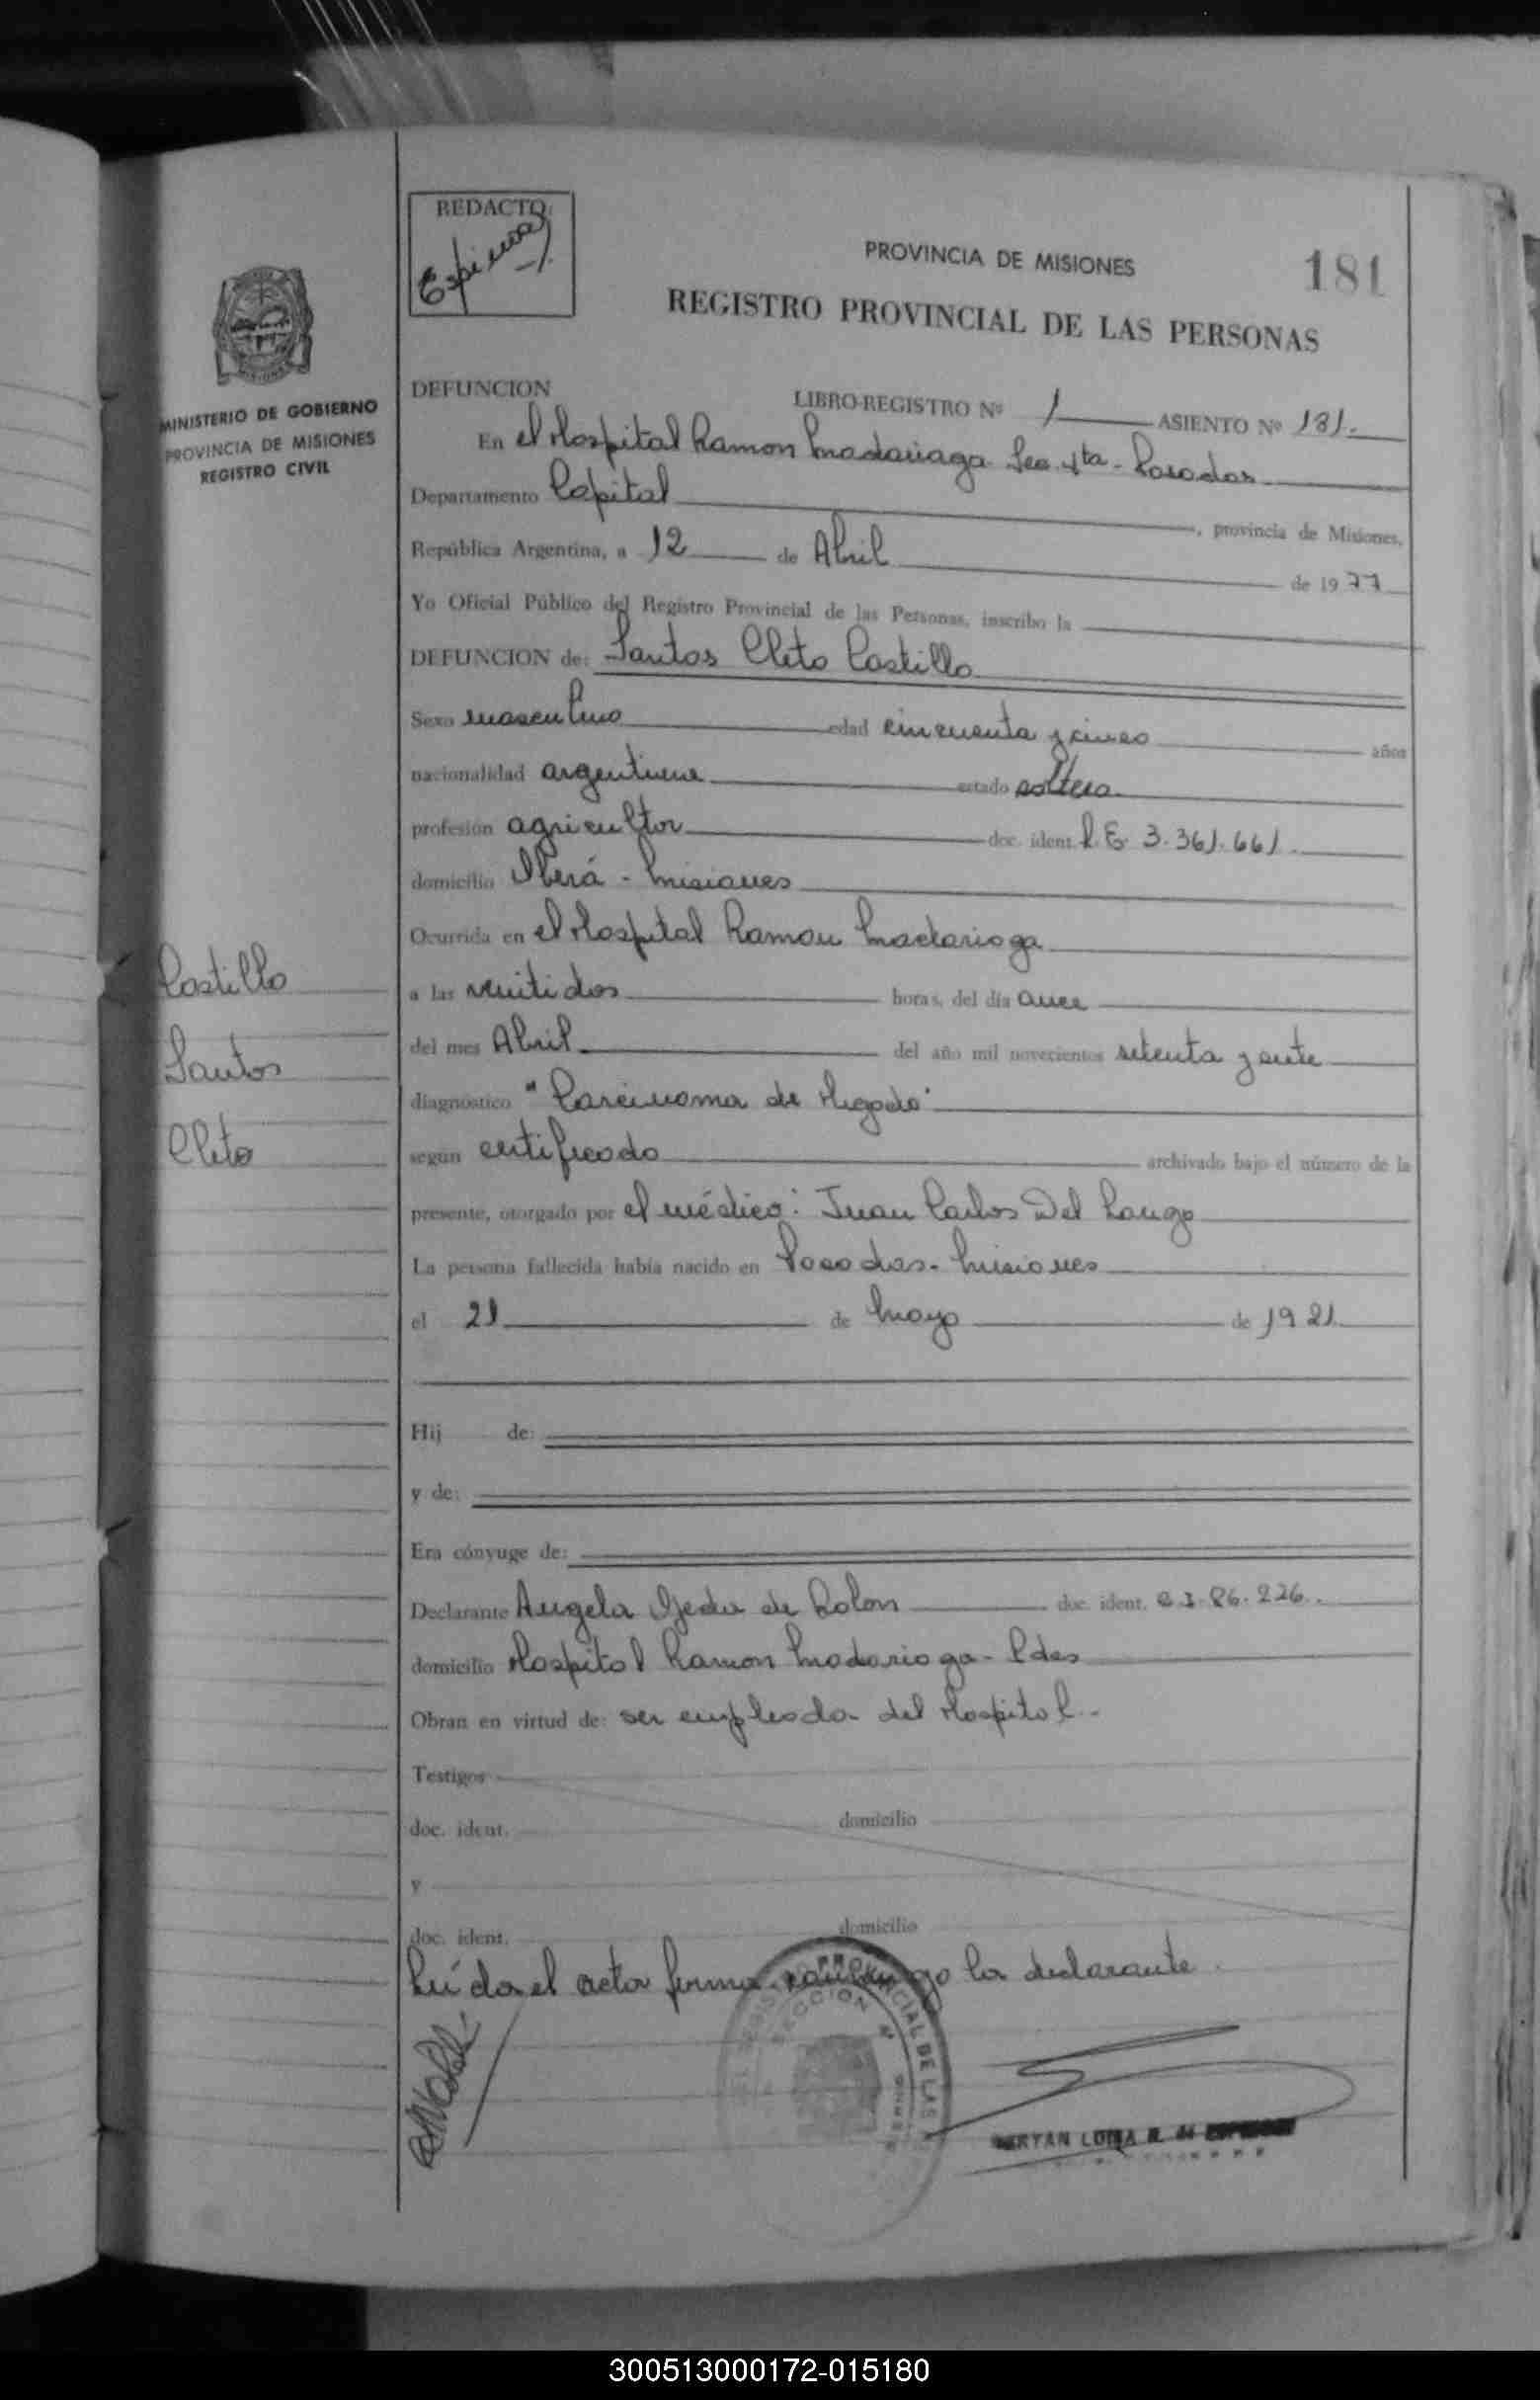 REDACTO:
Espinoza
PROVINCIA DE MISIONES
181
REGISTRO PROVINCIAL DE LAS PERSONAS
MINISTERIO DE GOBIERNO
PROVINCIA DE MISIONES
REGISTRO CIVIL
DEFUNCION
LIBRO-REGISTRO Nº 1 ASIENTO Nº 181.
En el Hospital Ramon Madariaga Sec. 4ta - Posadas
Departamento Capital, provincia de Misiones,
República Argentina, a 12 de Abril de 1977
Yo Oficial Público del Registro Provincial de las Personas, inscribo la
DEFUNCION de: Santos Cleto Castillo
Sexo masculino edad cincuenta y cinco años
nacionalidad argentina estado soltero
profesión agricultor doc. ident. L.E. 3.361.661.
domicilio Iberá - Misiones
Ocurrida en el Hospital Ramon Madariaga
a las veintidos horas, del día once
del mes Abril del año mil novecientos setenta y siete
diagnóstico "Carcinoma de Higado"
según certificado archivado bajo el número de la
presente, otorgado por el médico: Juan Carlos Del Longo
La persona fallecida había nacido en Posadas - Misiones
el 21 de Mayo de 1921
Hij de:
y de:
Era cónyuge de:
Declarante Angela Ojeda de Rolon doc. ident. C.I. 86.226.
domicilio Hospital Ramon Madariaga - Pdas
Obran en virtud de: ser empleada del Hospital.-
Testigos
doc. ident. domicilio
y
doc. ident. domicilio
Leída el acta firma conmigo la declarante.
Castillo
Santos
Cleto
SECCION 4ª
300513000172-015180